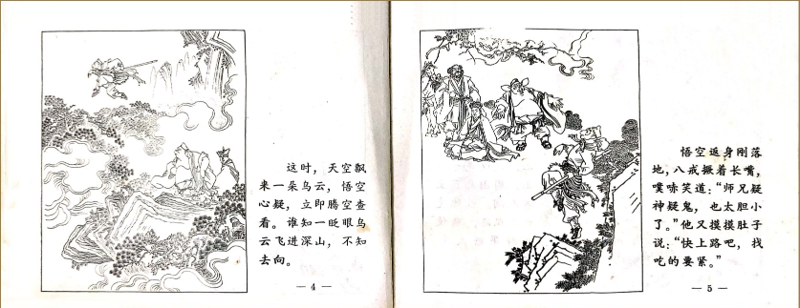 这时，天空飘
来一朵乌云，悟空
心疑，立即腾空查
看。谁知一眨眼乌
云飞进深山，不知
去向。
— 4 —
悟空返身刚落
地，八戒撅着长嘴，
噗哧笑道：“师兄疑
神疑鬼，也太胆小
了。”他又摸摸肚子
说：“快上路吧，找
吃的要紧。”
— 5 —